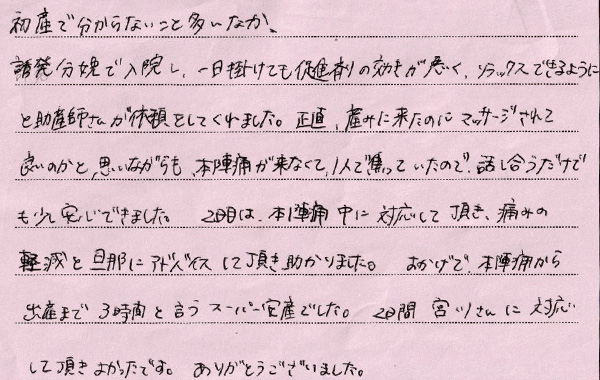 初産で分からないこと多いなか、
誘発分娩で入院し、一日掛けても促進剤の効きが悪く、リラックスできるように
と助産師さんが依頼をしてくれました。正直、産みに来たのにマッサージされて
良いのかと、思いながらも、本陣痛が来なくて、1人で焦っていたので、話し合うだけで
も少し安心できました。 2日目は、本陣痛中に対応して頂き、痛みの
軽減と旦那にアドバイスして頂き助かりました。 おかげで、本陣痛から
出産まで3時間と言うスーパー安産でした。 2日間 宮川さんに対応
して頂きよかったです。 ありがとうございました。